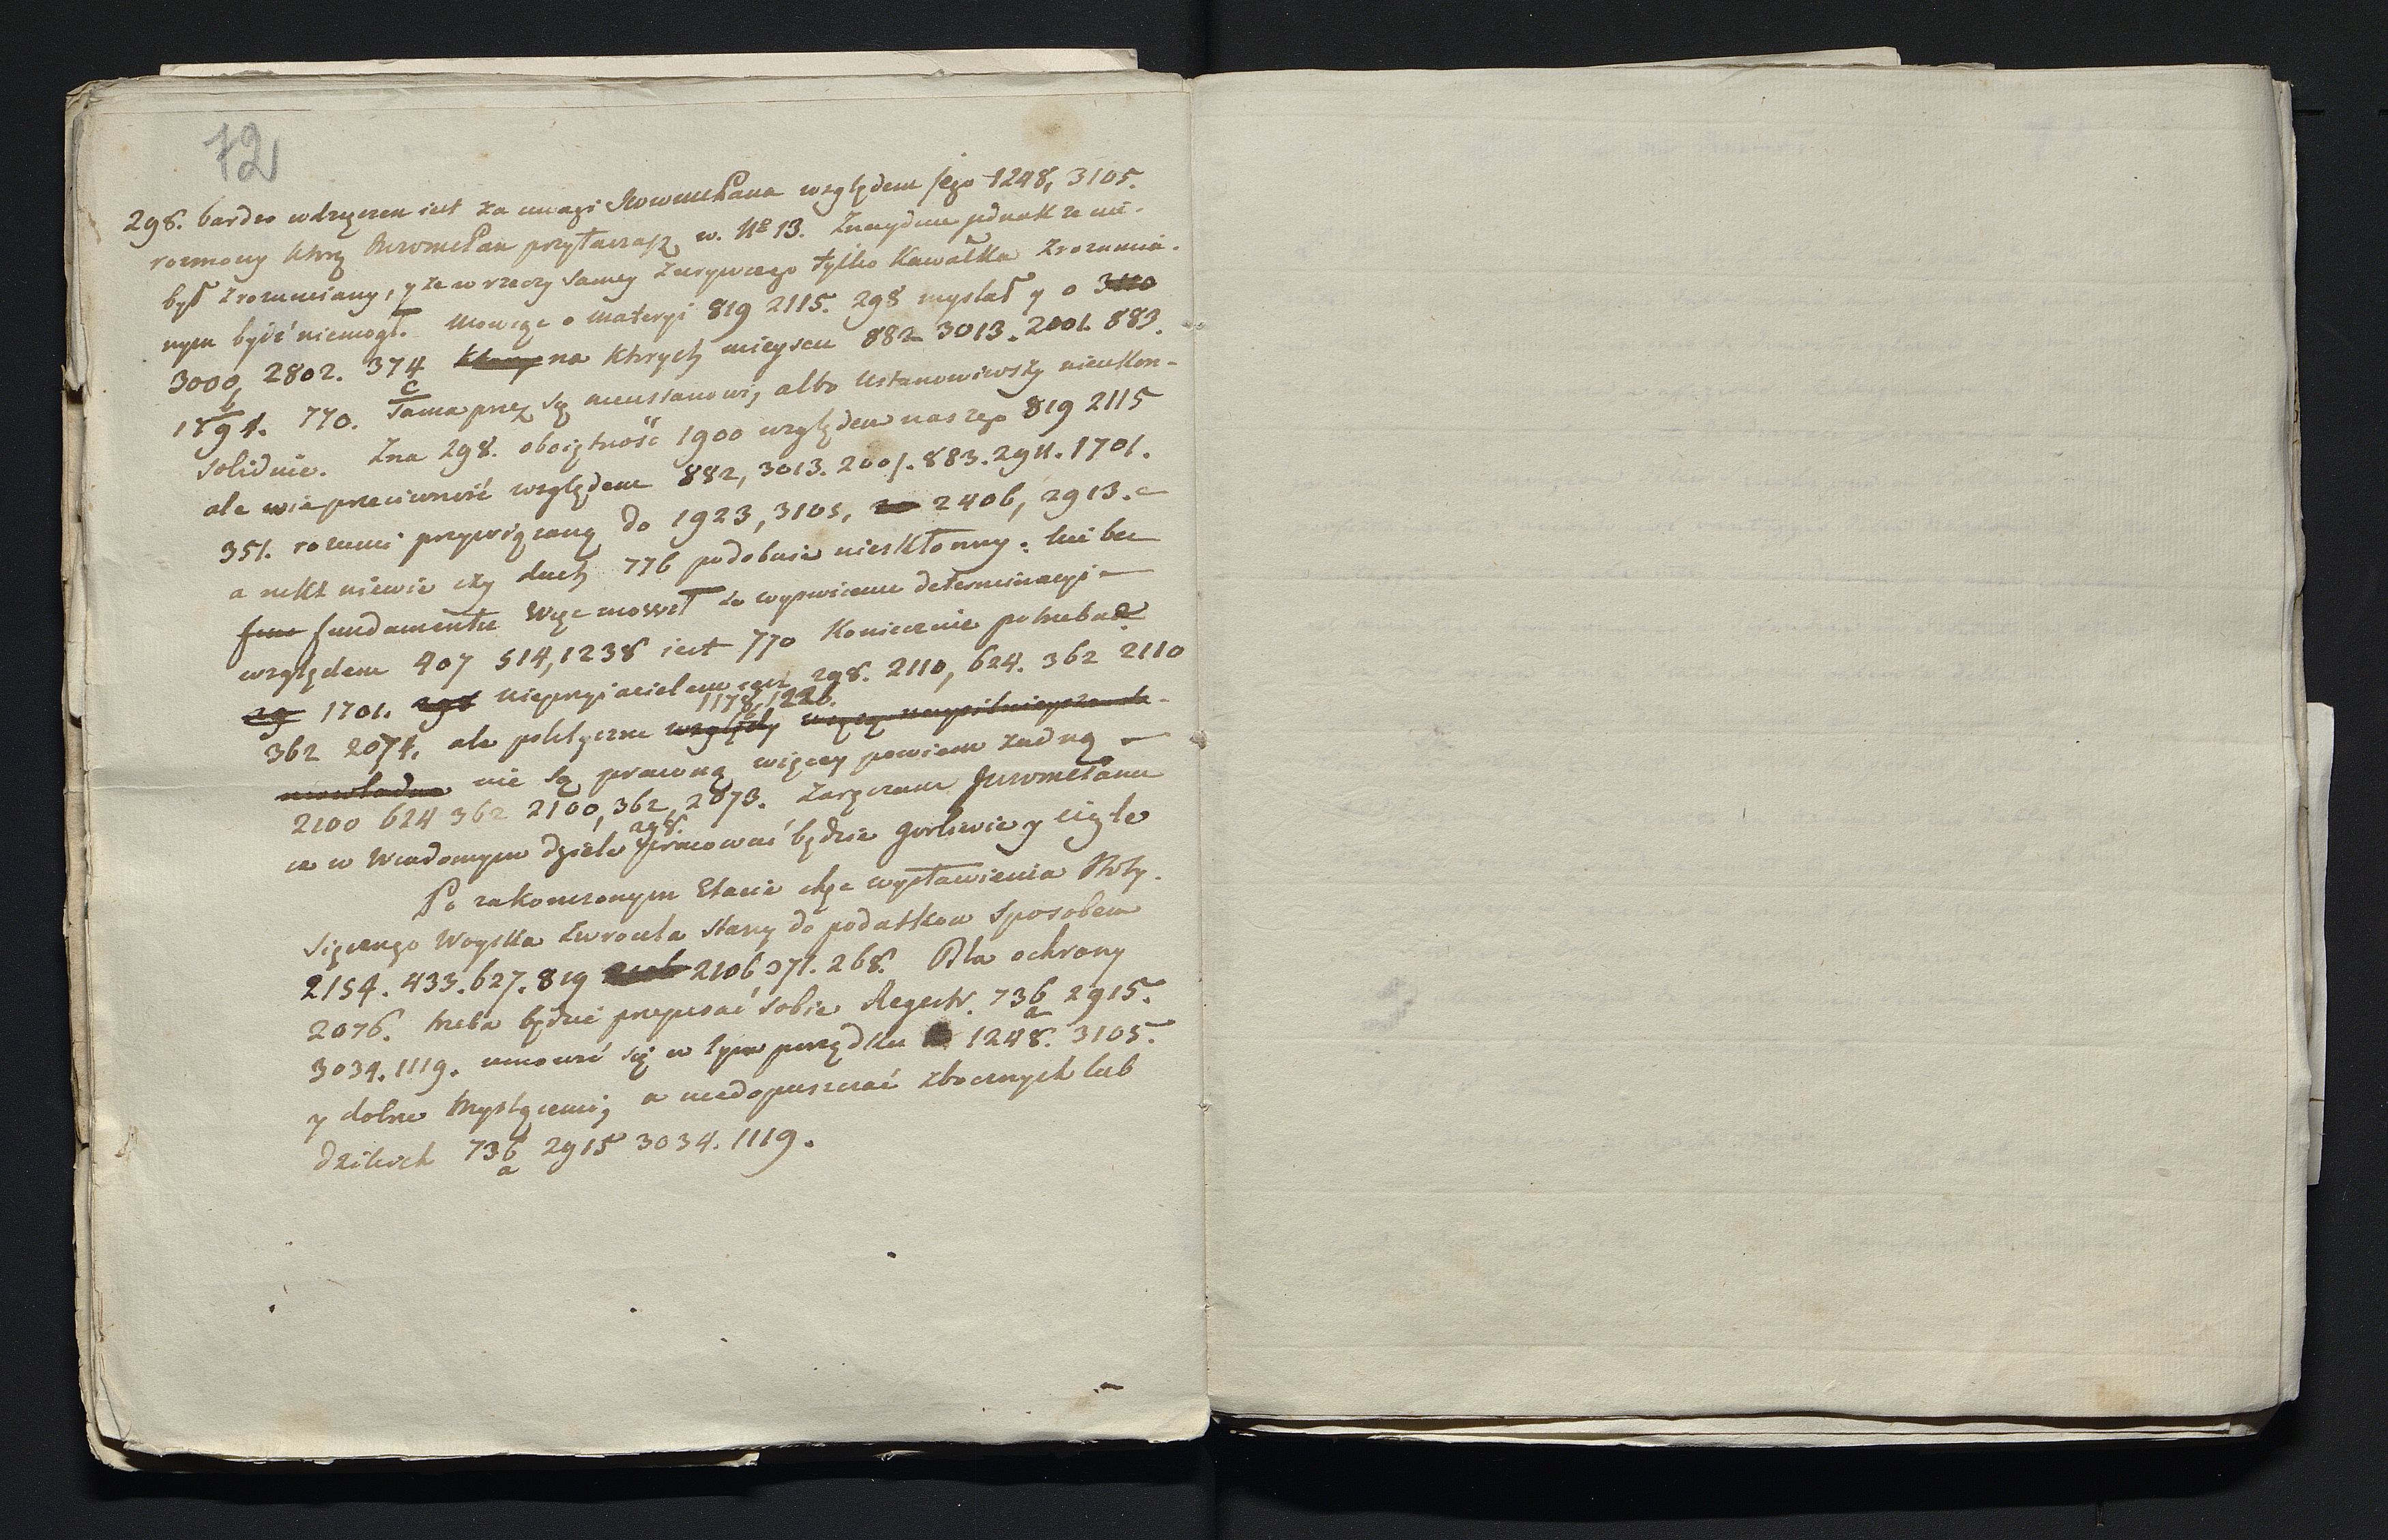 12
298. bardzo wdzięczen iest za uwagi JWWMCPana względem jego 1248, 3105.
rozmowy ktorą JWWMCPan przytaczasz w. No 13. Znayduie jednak ze nie-
był zrozumiany, y ze w rzeczy samey z urywczego tylko kawałka zrozumia-
nym być niemogł. Mowiąc o materyi 819 2115. 298 myslał y o 3110
3000, 2802. 374 ktorey na ktorych mieyscu 882 3013. 2001. 883.
b c
1891. 770. Tamaprez są nieustanowi, albo ustanowiwszy nieukon-
soliduie. Zna 298. oboiętność 1900 względem naszego 819 2115
ale wie przeciwność względem 882, 3013. 2001. 883. 2911. 1701.
351. rozumie przywiązaną do 1923, 3105, 2406, 2913.
a nikt niewie czy duch 776 podobnie niesktonny. lecz bez
fun fundamentu Więc mowił ze wyswiecenie determinacyi
względem 407 514, 1238 iest 770 koniecznie potrzebne
29 1701. 298 nieprzyiacielem iest 298. 2110, 624. 362 2110
1178, 1226.
362 2074. ale polityczne względy
nie są prawną więcey powiem zadną
2100 624 362 2100, 362, 2073. Zaręczam JWWMCPanu
298.
ze w Wiadomym dziele pracować będzie gorliwie y ciągle
Po zakonczonym Etacie chęc wystawienia Stoty-
sięcznego Woyska zwrociła stany do podatkow Sposobem
2154. 433. 627. 819 2106 2106 371. 268. Dla ochrony
2076. trzeba będzie przepisać sobie Regestr. 736 2915.
a
3034. 1119. umowić się w tym porządku 1248. 3105.
y dobrze myslącemi, a niedopuszczać zbocznych lub
dzikich 736 2915 3034. 1119.
a